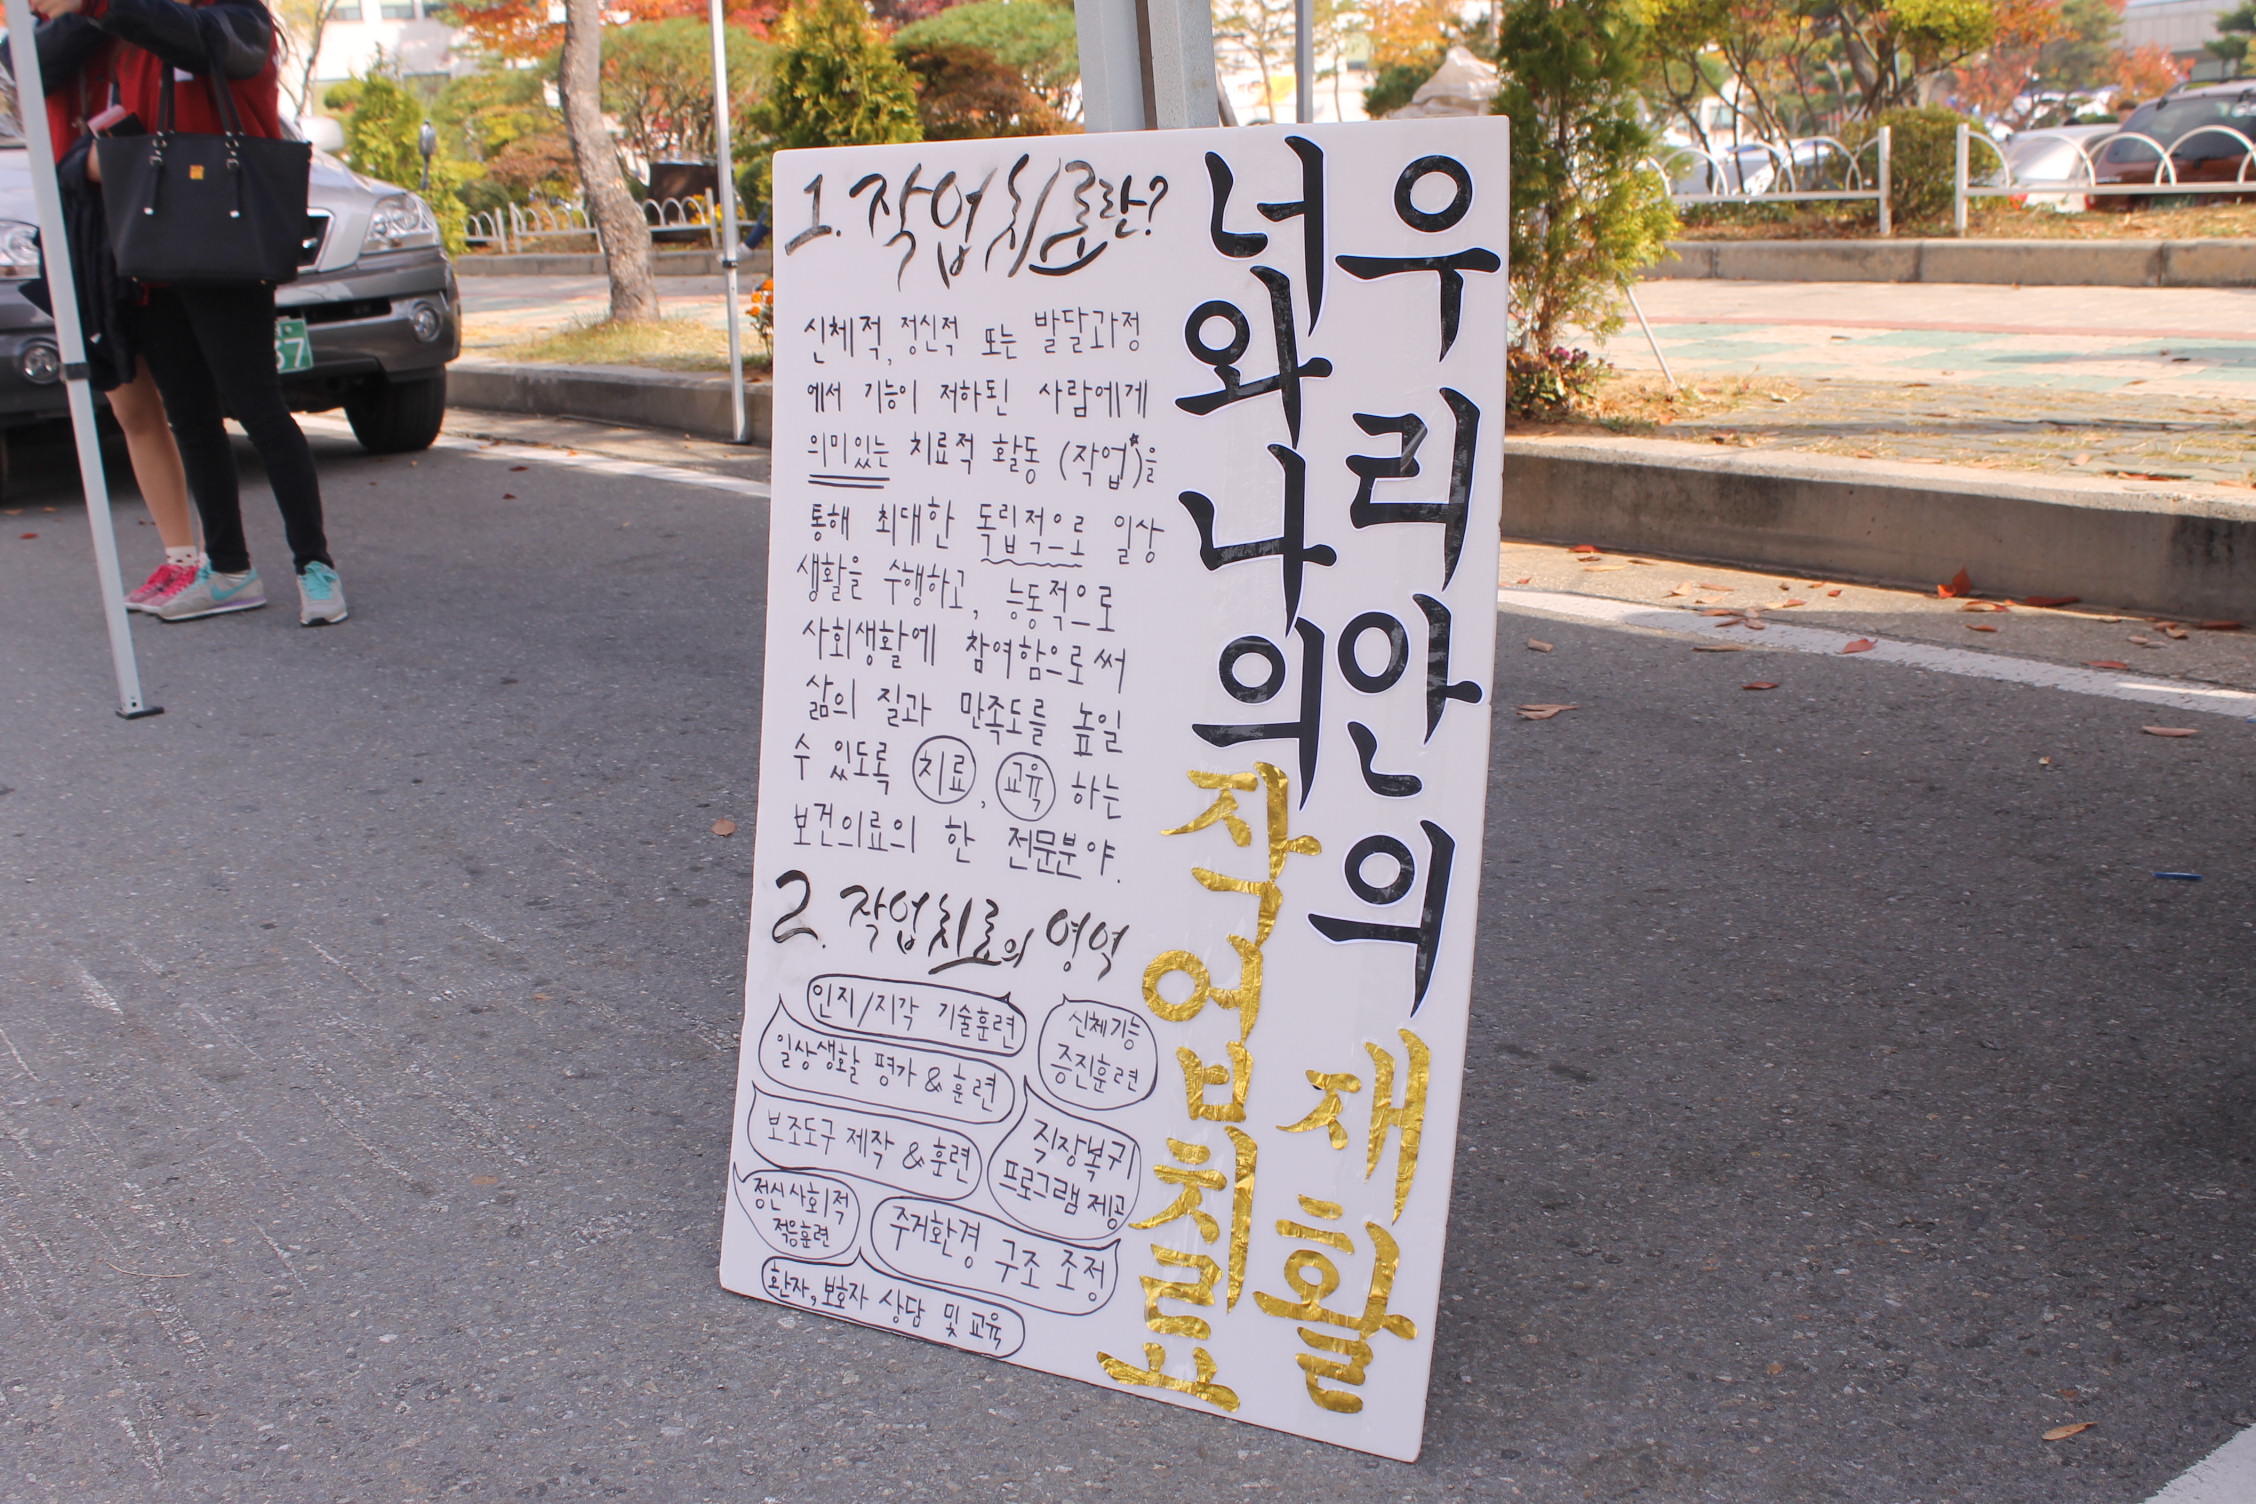 우리 안의 재활
너와 나의 작업치료
1. 작업치료란?
신체적, 정신적 또는 발달과정
에서 기능이 저하된 사람에게
의미있는 치료적 활동 (작업*)을
통해 최대한 독립적으로 일상
생활을 수행하고, 능동적으로
사회생활에 참여함으로써
삶의 질과 만족도를 높일
수 있도록 치료, 교육 하는
보건의료의 한 전문분야.
2. 작업치료의 영역
인지/지각 기술훈련
신체기능
증진훈련
일상생활 평가 & 훈련
보조도구 제작 & 훈련
직장복귀
프로그램 제공
정신사회적
적응훈련
주거환경 구조 조정
환자, 보호자 상담 및 교육